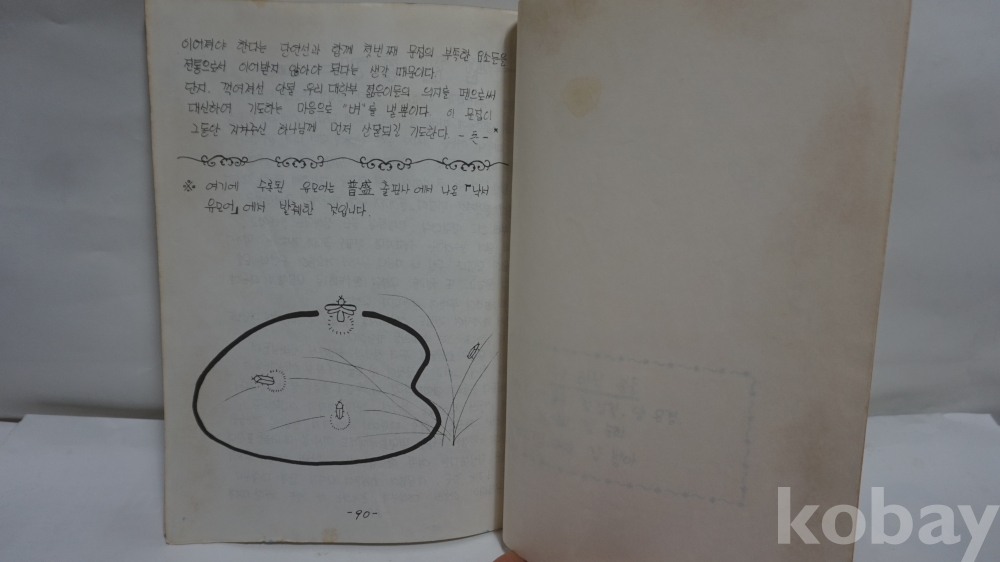 이어져야 한다는 단연선과 함께 첫번째 문집의 부족한 요소들을
전통으로서 이어받지 않아야 된다는 생각 때문이다.
단지. 꺾여져선 안될 우리 대학부 젊은이들의 의지를 펜으로써
대신하여 기도하는 마음으로 "벼"를 낼뿐이다. 이 문집이
그동안 지켜주신 하나님께 먼저 상달되길 기도한다. - 튼 - *
※ 여기에 수록된 유모어는 普盛 출판사에서 나온 「낙서
유모어」에서 발췌한 것입니다.
-90-
kobay